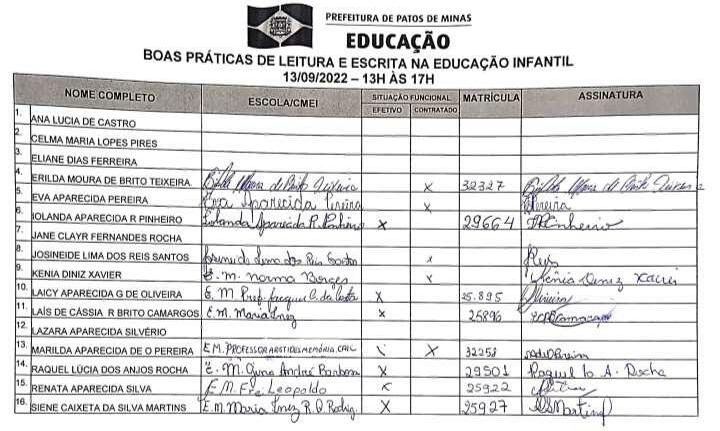 PREFEITURA DE PATOS DE MINAS
EDUCAÇÃO
BOAS PRÁTICAS DE LEITURA E ESCRITA NA EDUCAÇÃO INFANTIL
13/09/2022 – 13H ÀS 17H
NOME COMPLETO ESCOLA/CMEI SITUAÇÃO FUNCIONAL MATRÍCULA ASSINATURA
EFETIVO CONTRATADO
1. ANA LUCIA DE CASTRO
2. CELMA MARIA LOPES PIRES
3. ELIANE DIAS FERREIRA
4. ERILDA MOURA DE BRITO TEIXEIRA Moura de Brito Teixeira X 32327 Moura de Brito
5. EVA APARECIDA PEREIRA Eva Aparecida Pereira X
6. IOLANDA APARECIDA R PINHEIRO Iolanda Aparecida R. Pinheiro X 29664 Pinheiro
7. JANE CLAYR FERNANDES ROCHA
8. JOSINEIDE LIMA DOS REIS SANTOS Josineide Lima dos Reis Santos x
9. KENIA DINIZ XAVIER E. M. Norma Borges X Kênia Diniz Xavier
10. LAICY APARECIDA G DE OLIVEIRA E. M. Prof. Jacques C. da Costa X 25.895
11. LAÍS DE CÁSSIA R BRITO CAMARGOS E.M. Maria Inez X 25896
12. LAZARA APARECIDA SILVÉRIO
13. MARILDA APARECIDA DE O PEREIRA E M. PROFESSOR X 32258
14. RAQUEL LÚCIA DOS ANJOS ROCHA E. M. Gino André Barbosa X 29501 Raquel L. A. Rocha
15. RENATA APARECIDA SILVA E M. Frei Leopoldo X 25922
16. SIENE CAIXETA DA SILVA MARTINS E. M. Maria Inez R. Q. Rodrig. X 25927 Martins